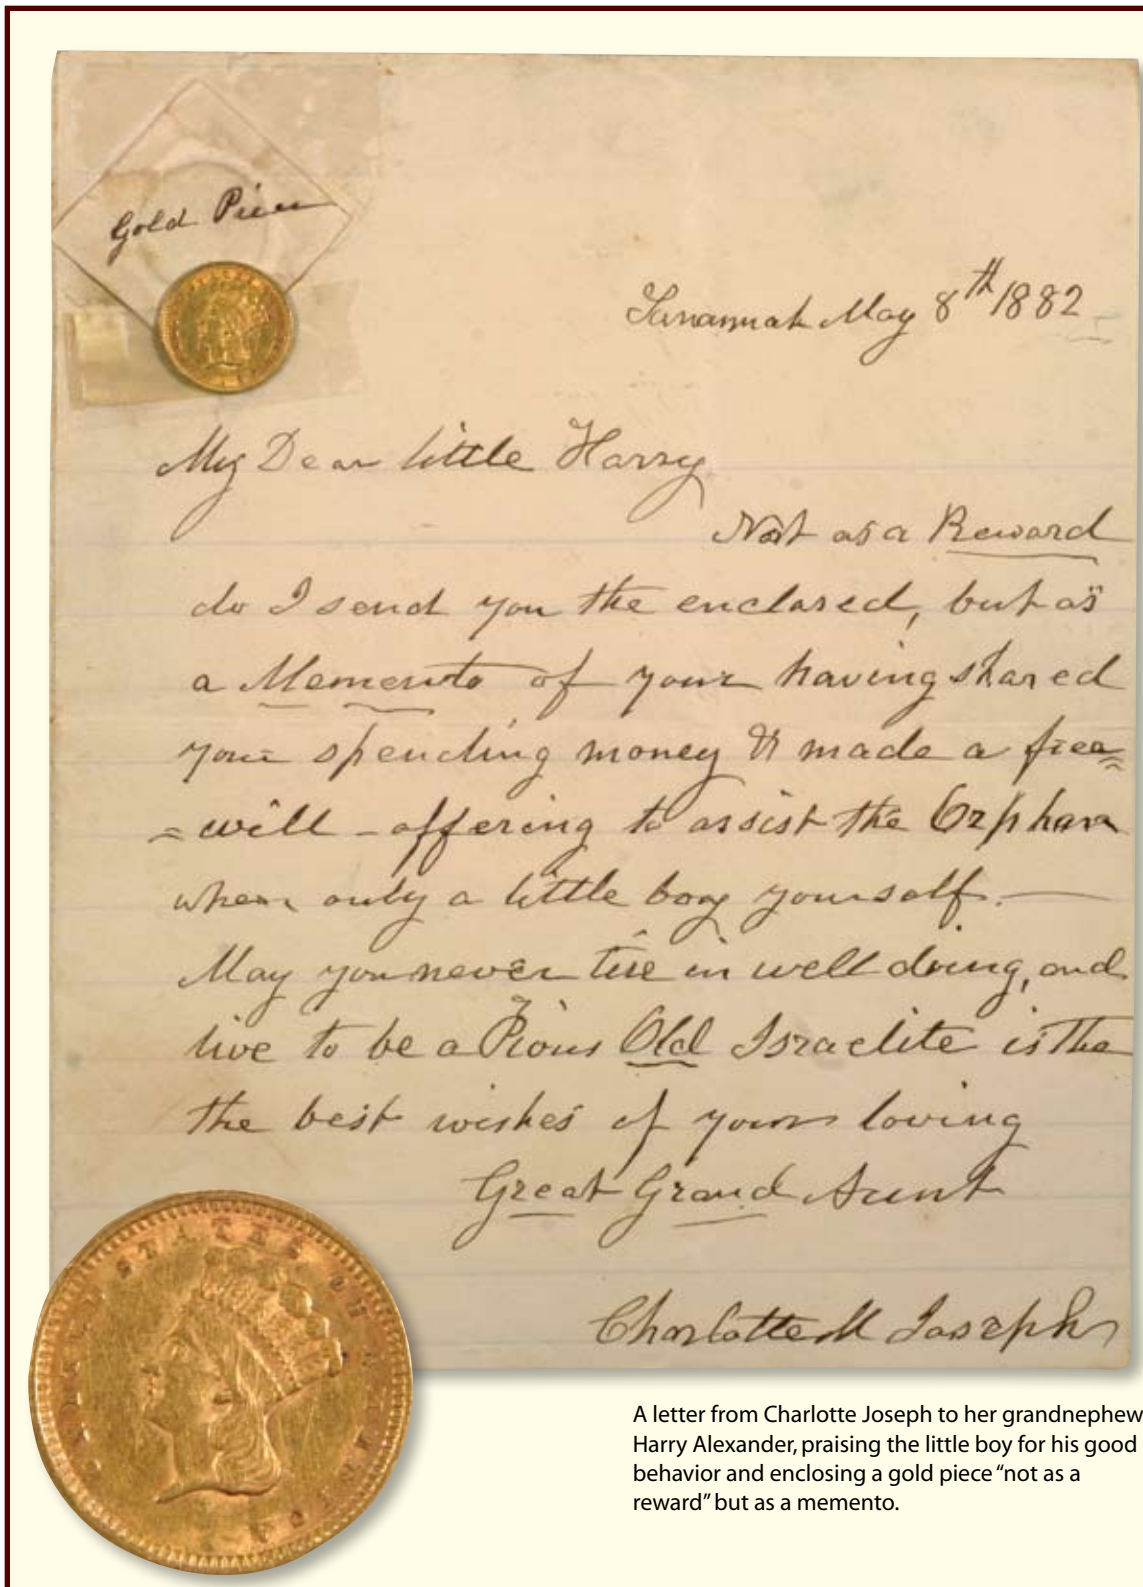 Gold Piece
Savannah May 8th 1882
My Dear little Harry
Not as a Reward
do I send you the enclosed, but as
a Memento of your having shared
your spending money & made a free=
=will-offering to assist the Orphans
when only a little boy yourself.—
May you never tire in well doing, and
live to be a Pious Old Israelite is the
the best wishes of your loving
Great Grand Aunt
Charlotte M Joseph
UNITED STATES OF AMERICA
A letter from Charlotte Joseph to her grandnephew
Harry Alexander, praising the little boy for his good
behavior and enclosing a gold piece “not as a
reward” but as a memento.